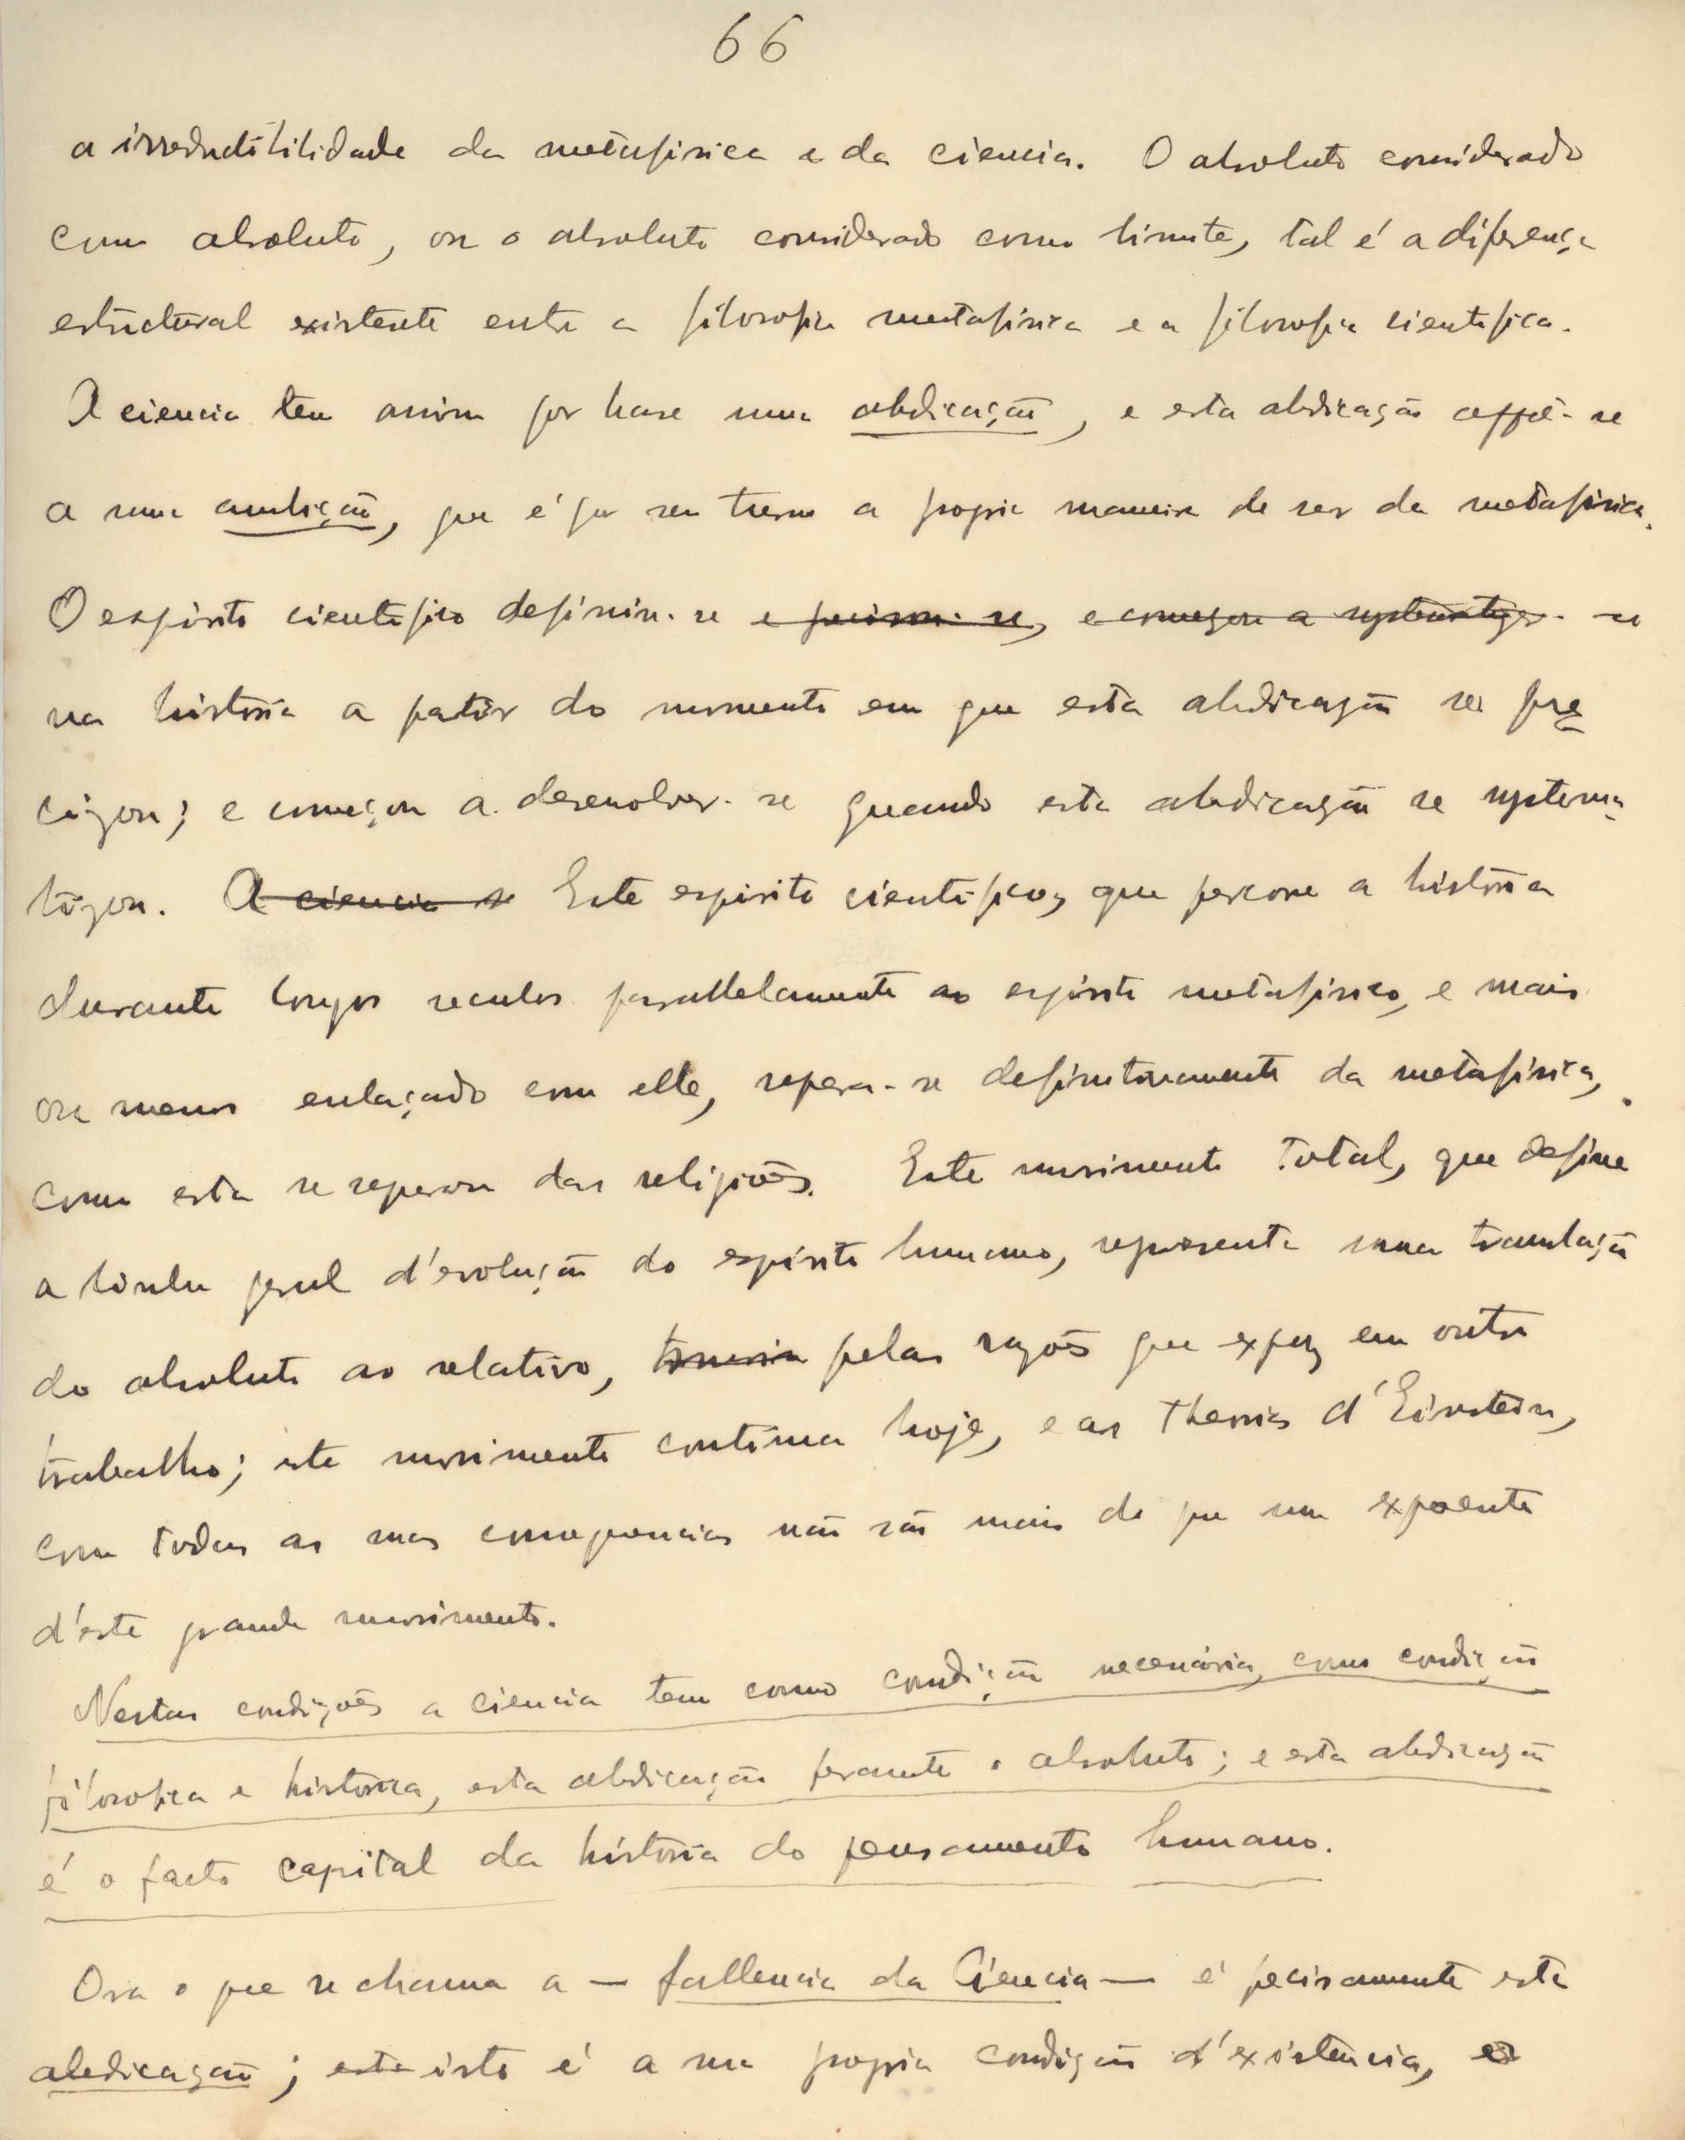 66
a irreductibilidade da metafisica e da ciencia. O absoluto considerado
como absoluto, ou o absoluto considerado como limite, tal é a diferença
estructural existente entre a filosofia metafisica e a filosofia cientifica.
A ciencia tem assim por base uma abdicação, e esta abdicação oppõe-se
a uma ambição, que é por seu turno a propria maneira de ser da metafisica.
O espirito cientifico definiu-se e precisou-se, e começou a systematizar-se
na historia a partir do momento em que esta abdicação se pre
cizou; e começou a desenvolver-se quando esta abdicação se systema
tizou. A ciencia se Este espirito cientifico, que percorre a historia
durante longos seculos parallelamente ao espirito metafisico, e mais
ou menos enlaçado com elle, separa-se definitivamente da metafisica,
como esta se separou das religiões. Este movimento total, que define
a linha geral d'evolução do espirito humano, representa uma translação
do absoluto ao relativo, pelas razões que expuz em outro
trabalho; este movimento continua hoje, e as theorias d'Einstein,
com todas as suas consequencias não são mais do que um expoente
d'este grande movimento.
Nestas condições a ciencia tem como condição necessária, como condição
filosofica e historica, esta abdicação perante o absoluto; e esta abdicação
é o facto capital da historia do pensamento humano.
Ora o que se chama a — fallencia da Ciencia — é precisamente esta
abdicação; esta isto é a sua propria condição d'existencia, e